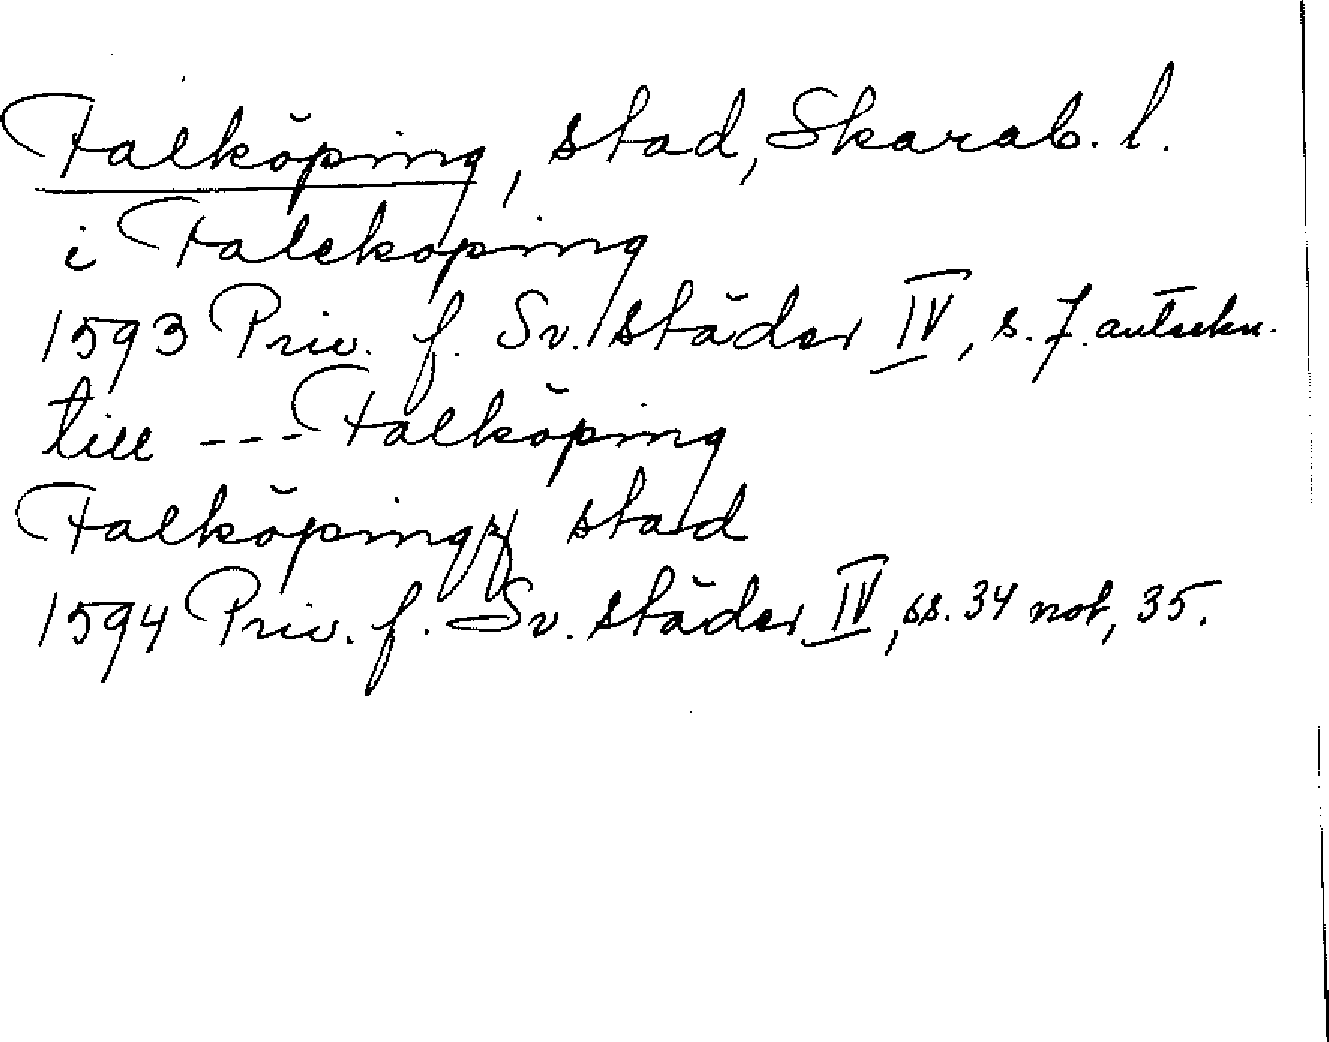 Falköping, stad, Skarab. l.
i Falekoping
1593 Priv. f. Sv. städer IV, s. 7. anteckn.
till --- Falköping
Falköpingz stad
1594 Priv. f. Sv. städer IV, ss. 34 not, 35.